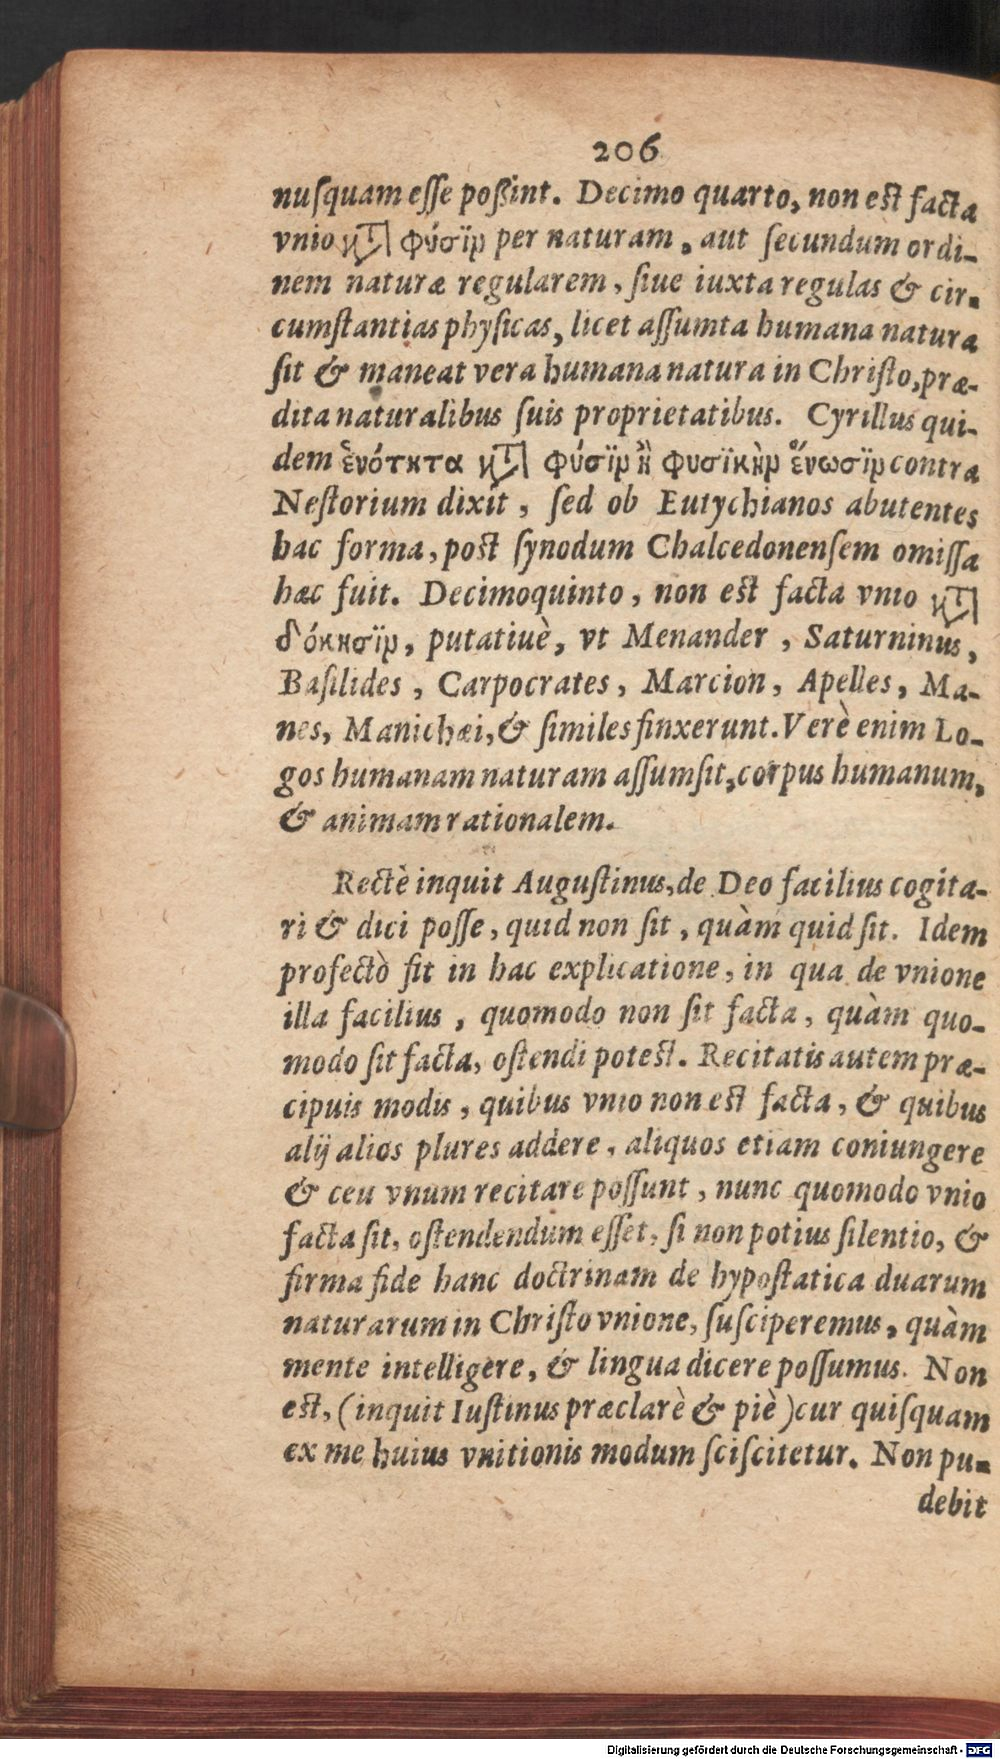 206
nuſquam eſſe poßint. Decimo quarto, non est facta
vnio κτ͂ φύσϊν per naturam, aut ſecundum ordi-
nem naturæ regularem, ſiue iuxta regulas & cir-
cumſtantias phyſicas, licet aſſumta humana natura
ſit & maneat vera humana natura in Chriſto, præ-
dita naturalibus ſuis proprietatibus. Cyrillus qui-
dem ἑνότητα κτ͂ φύσϊν ἢ φυσϊκὴν ἕνωσϊν contra
Neſtorium dixit, ſed ob Eutychianos abutentes
hac forma, post ſynodum Chalcedonenſem omiſſa
hæc fuit. Decimoquinto, non est facta vnio κτ͂
δόκησϊν, putatiuè, vt Menander, Saturninus,
Baſilides, Carpocrates, Marcion, Apelles, Ma-
nes, Manichæi, & ſimiles finxerunt. Verè enim Lo-
gos humanam naturam aſſumſit, corpus humanum,
& animam rationalem.
Rectè inquit Auguſtinus, de Deo facilius cogita-
ri & dici poſſe, quid non ſit, quàm quid ſit. Idem
profectò fit in hac explicatione, in qua de vnione
illa facilius, quomodo non ſit facta, quàm quo-
modo ſit facta, oſtendi potest. Recitatis autem præ-
cipuis modis, quibus vnio non est facta, & quibus
alij alios plures addere, aliquos etiam coniungere
& ceu vnum recitare poſſunt, nunc quomodo vnio
facta ſit, oſtendendum eſſet, ſi non potius ſilentio, &
firma fide hanc doctrinam de hypoſtatica duarum
naturarum in Chriſto vnione, ſuſciperemus, quàm
mente intelligere, & lingua dicere poſſumus. Non
est, (inquit Iuſtinus præclarè & piè) cur quiſquam
ex me huius vnitionis modum ſciſcitetur. Non pu-
debit
Digitalisierung gefördert durch die Deutsche Forschungsgemeinschaft - DFG